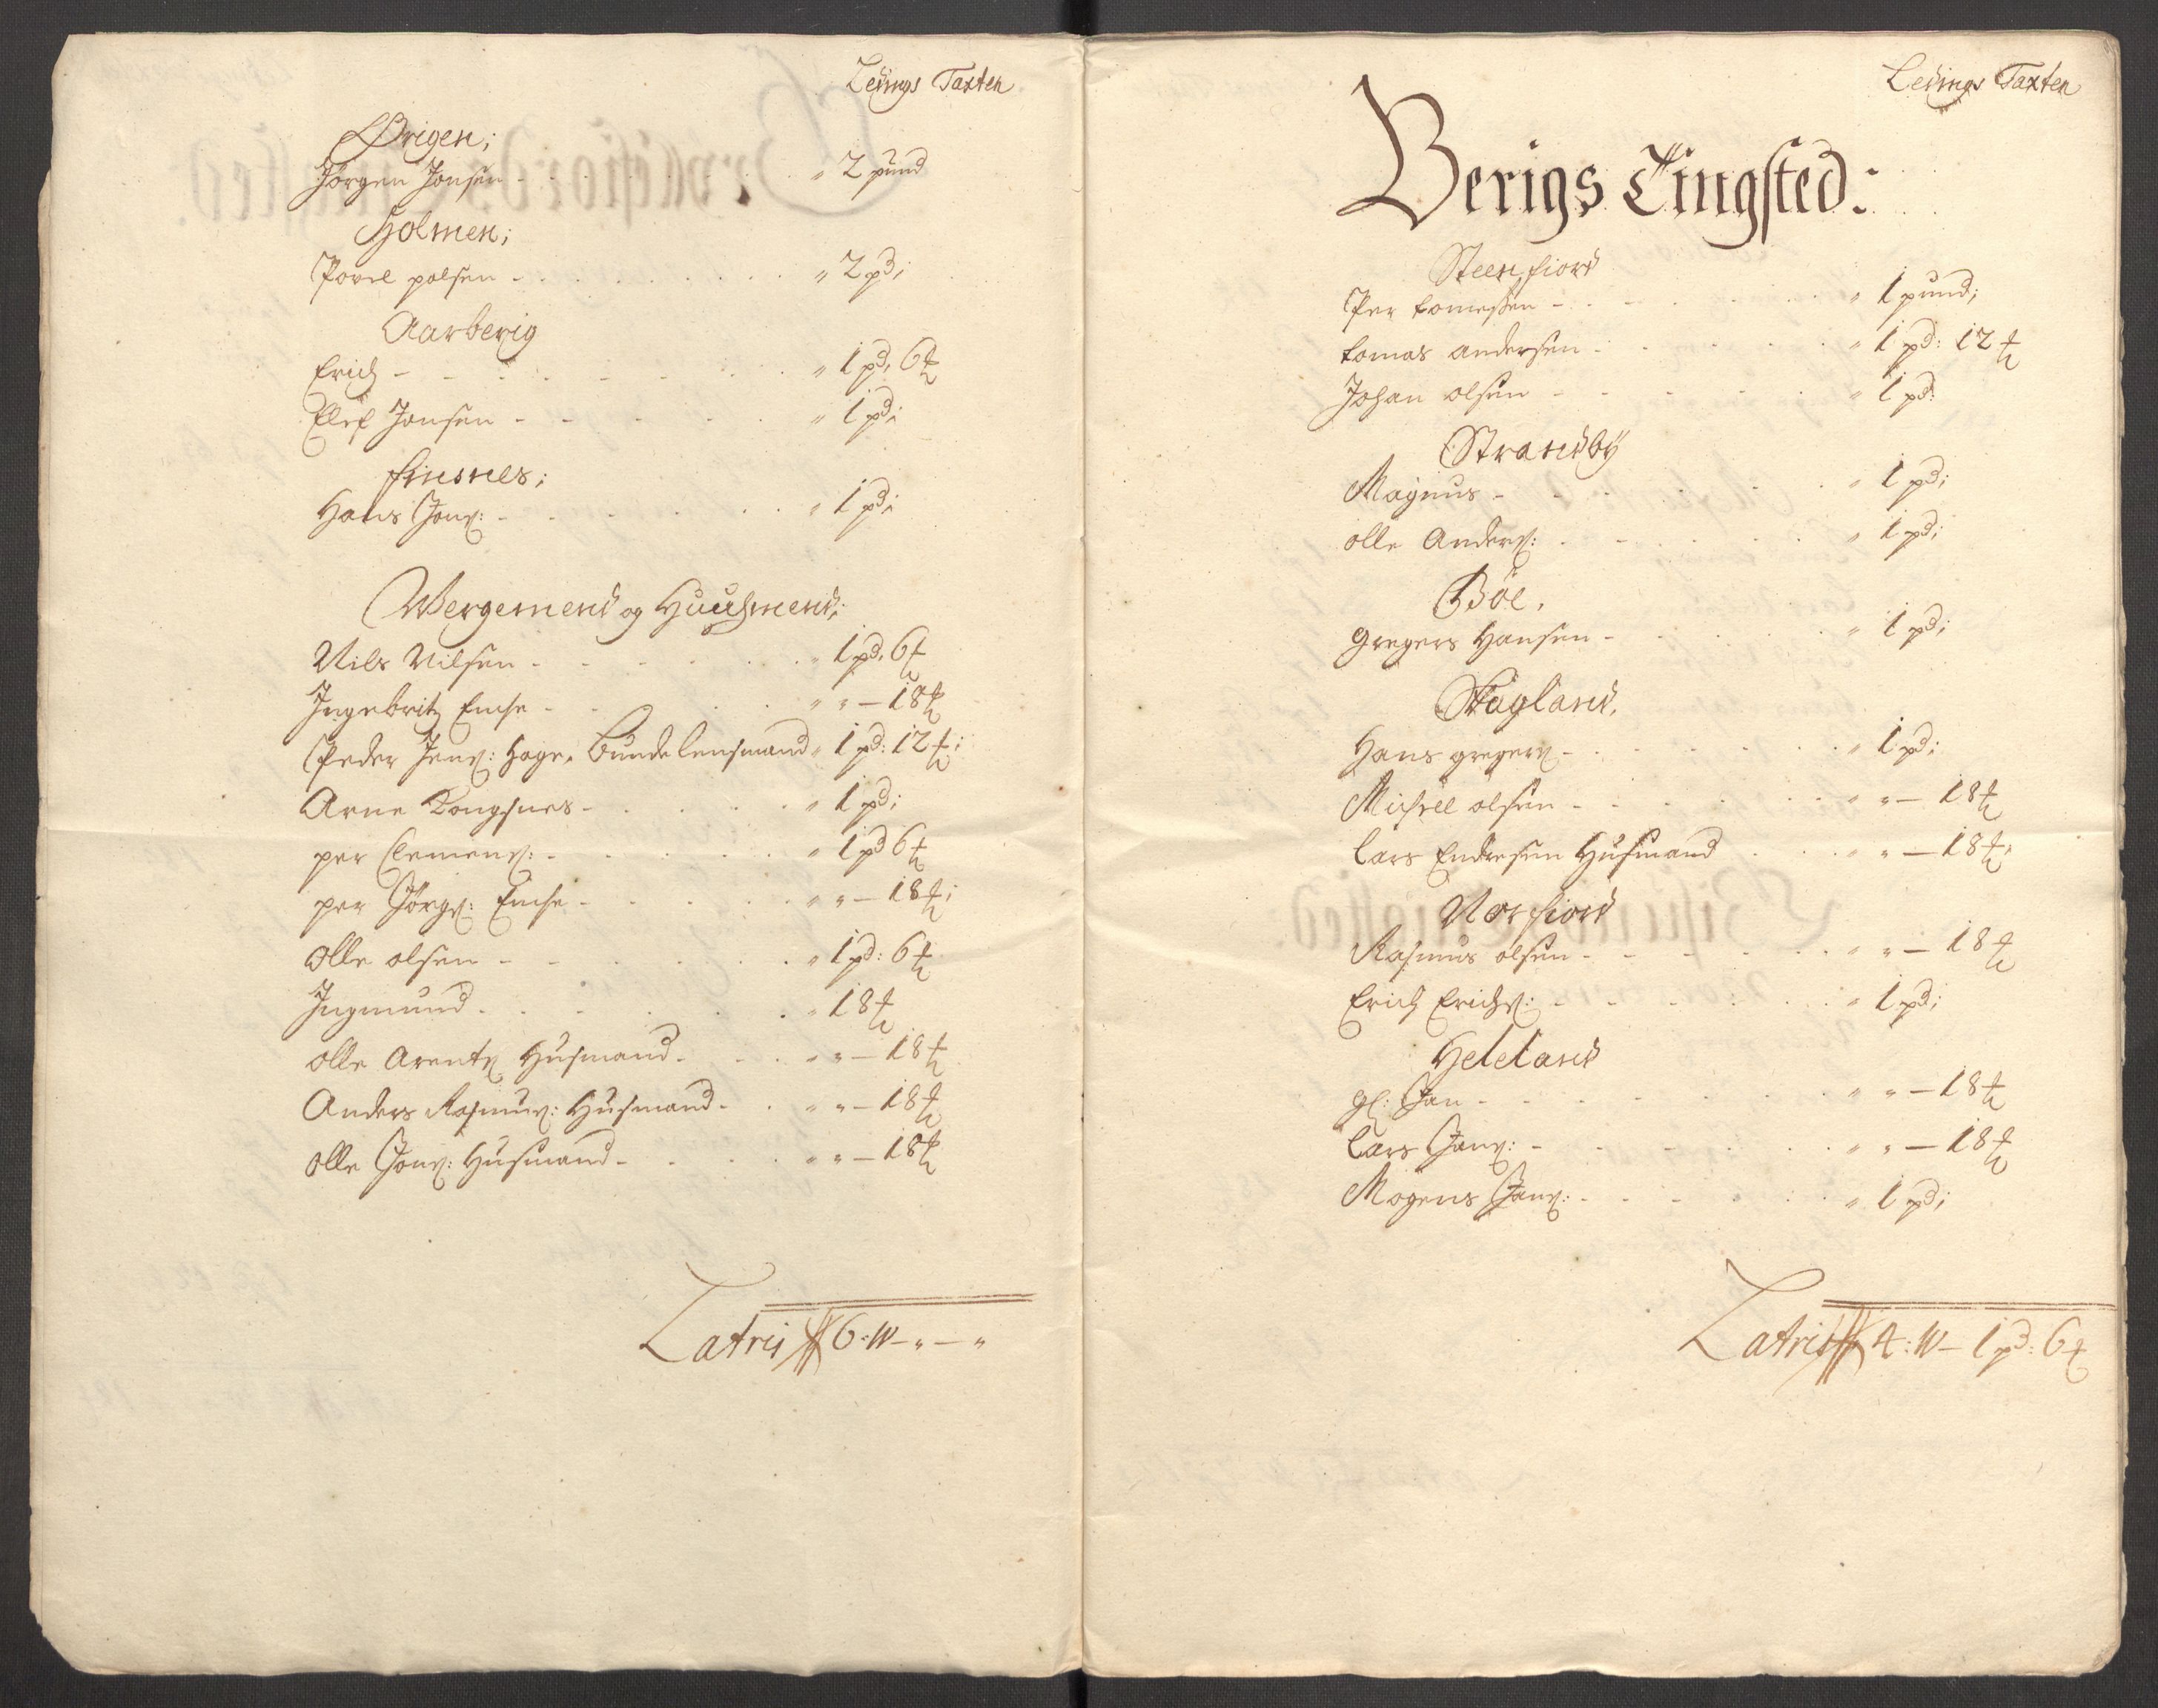 Ledings Taxten
Ørigen;
Jörgen Jonsen - - - - - - " 2 pund
Holmen;
Povel polsen - . . . . . . " 2 pd;
Aarberig
Erich - - - - - - - . . " 1 pd, 6 ℔
Ellef Jonsen - - - - - . " 1 pd;
finsnes;
Hans Jons: - . . . . . " 1 pd;
Wergemend og Huuhsmend;
Nils Nilsen - - - - - . . " 1 pd, 6 ℔
Ingebrit - . . . " " — 18 ℔
Peder Jens: Hage, Bundelensmand " 1 pd: 12 ℔;
Arne Kongsnes - . . . . " 1 pd;
per Clemens: - . . . . . " 1 pd 6 ℔
per Jörgs: - . . . . " " — 18 ℔;
Olle olsen - - . . . . . " 1 pd: 6 ℔
Ingmund - . . . . . " 18 ℔
olle Arents Husmand - . . " " — 18 ℔
Anders Rasmus: Husmand - . " " — 18 ℔
Olle Jons: Husmand - . . . " " — 18 ℔
Latris 6: W — " — "
Ledings Taxten
Berigs Tingsted:
Steenfiord
Per tomessen - - . . . . " 1 pund;
tomas andersen - . . . . " 1 pd: 12 ℔
Johan olsen - - . . . . " 1 pd:
Strandby
Magnus - - - . . . . " 1 pd;
olle Anders: . - . . . " 1 pd;
Böe,
gregers Hansen - . . . . " 1 pd;
Skagland,
Hans gregers - . . . . . " 1 pd;
Michel olsen - - . . . . " " — 18 ℔
Lars Endresen Husmand . . . " " — 18 ℔;
Norfiord
Rasmus olsen - - - . . . " " — 18 ℔
Erich Erichs: - - - . . . " 1 pd;
Heteland
gl: Jan - - - . . . . " " — 18 ℔
Lars Jans: - - - . . . " " — 18 ℔
Mogens Jans: - - - . . . " 1 pd;
Latris 4: W — 1 pd: 6 ℔